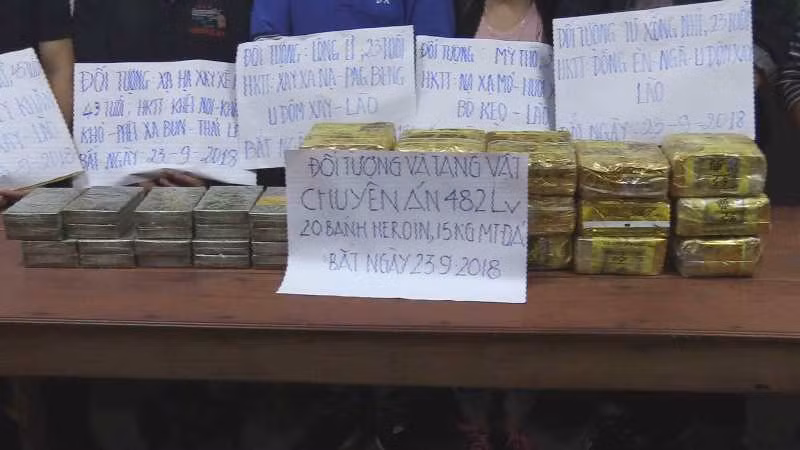 45 TUỔI
ĐỐI TƯỢNG XA HA XAY XÊ
43 TUỔI, HKTT KHỆT NOI-KHĂ
KHO-PHÊT XA BUN-THÁI L
BẮT NGÀY 23-9-2018
ĐỐI TƯỢNG-LONG LÌ, 23 TUỔI
HKTT-XAY XA NA-PAG BENG
U ĐÔM XAY-LÀO
BẮT NG
ĐỐI TƯỢNG MỲ THO
HKTT-NA XA MO-
BO KẸO-LÀO
BẮT
ĐỐI TƯỢNG TU XÔNG NHI, 23 TUỔI
HKTT-ĐÔNG ÈN-NGÃ-U ĐÔM XAY
LÀO
BẮT NGÀY-25-9-2018
ĐỐI TƯỢNG VÀ TANG VẬT
CHUYÊN ÁN 482Lv
20 BÁNH HEROIN, 15 KG MT-ĐÁ
BẮT NGÀY 23.9.2018